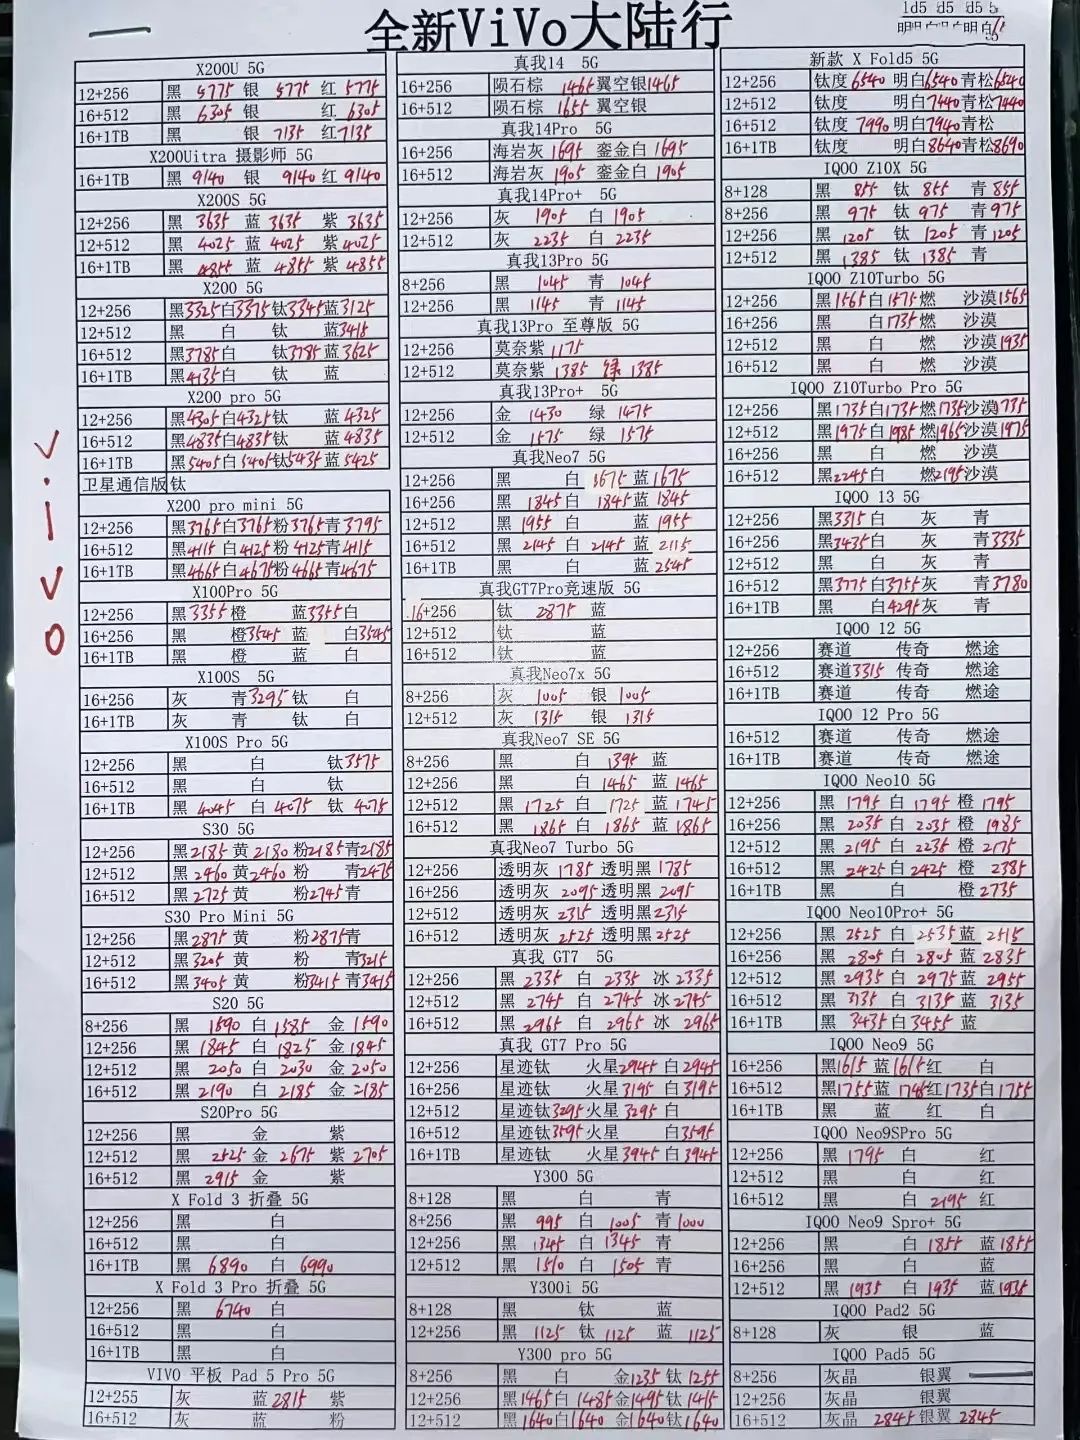 全新ViVo大陆行
1d5 d5 d5 5
vivo
X200U 5G
12+256 黑 5775 银 5775 红 5775
16+512 黑 6305 银 红 6305
16+1TB 黑 银 7135 红7135
X200Uitra 摄影师 5G
16+1TB 黑 9140 银 9140 红 9140
X200S 5G
12+256 黑 3635 蓝 3635 紫 3635
12+512 黑 4025 蓝 4025 紫 4025
16+1TB 黑 4855 蓝 4855 紫 4855
X200 5G
12+256 黑3325白3375钛3345蓝3125
12+512 黑 白 钛 蓝3415
16+512 黑3785白 钛3785蓝3625
16+1TB 黑4135白 钛 蓝
X200 pro 5G
12+256 黑4305白4325钛 蓝 4325
16+512 黑4835白4835钛 蓝 4835
16+1TB 黑5405白5405钛5435蓝 5425
卫星通信版 钛
X200 pro mini 5G
12+256 黑3765白3765粉3765青3795
16+512 黑4115 白4125 粉 4125青4115
16+1TB 黑4665白4675粉4665青4675
X100Pro 5G
12+256 黑3355橙 蓝3355白
16+256 黑 橙3545 蓝 白3545
16+1TB 黑 橙 蓝 白
X100S 5G
16+256 灰 青3295钛 白
16+1TB 灰 青 钛 白
X100S Pro 5G
12+256 黑 白 钛3575
16+512 黑 白 钛
16+1TB 黑 4045 白 4075 钛 4075
S30 5G
12+256 黑2185 黄 2180 粉2185青2185
12+512 黑 2460 黄2460 粉 青2475
16+512 黑2725 黄 粉2745青
S30 Pro Mini 5G
12+256 黑2875 黄 粉2875青
12+512 黑3205 黄 粉 青3215
16+512 黑3405 黄 粉3415 青3415
S20 5G
8+256 黑 1590 白1585 金 1590
12+256 黑 1845 白 1825 金 1845
12+512 黑 2050 白 2030 金 2050
16+512 黑 2190 白 2185 金 2185
S20Pro 5G
12+256 黑 金 紫
12+512 黑 2525 金 2675 紫 2705
16+512 黑 2915 金 紫
X Fold 3 折叠 5G
12+256 黑 白
16+512 黑 白
16+1TB 黑 6890 白 6990
X Fold 3 Pro 折叠 5G
12+256 黑 6740 白
16+512 黑 白
16+1TB 黑 白
VIVO 平板 Pad 5 Pro 5G
12+255 灰 蓝 2815 紫
16+512 灰 蓝 粉
真我14 5G
16+256 陨石棕 1465翼空银1465
16+512 陨石棕 1655 翼空银
真我14Pro 5G
16+256 海岩灰 1695 銮金白 1695
16+512 海岩灰 1905 銮金白 1905
真我14Pro+ 5G
12+256 灰 1905 白 1905
12+512 灰 2235 白 2235
真我13Pro 5G
8+256 黑 1045 青 1045
12+256 黑 1145 青 1145
真我13Pro 至尊版 5G
12+256 莫奈紫 1175
12+512 莫奈紫 1385 绿 1385
真我13Pro+ 5G
12+256 金 1430 绿 1475
12+512 金 1575 绿 1575
真我Neo7 5G
12+256 黑 白 1675 蓝1675
16+256 黑 1845白 1845蓝1845
12+512 黑 1955 白 蓝 1955
16+512 黑 2145 白 2145 蓝 2115
16+1TB 黑 白 蓝 2545
真我GT7Pro竞速版 5G
16+256 钛 2875 蓝
12+512 钛 蓝
16+512 钛 蓝
真我Neo7x 5G
8+256 灰 1005 银 1005
12+512 灰 1315 银 1315
真我Neo7 SE 5G
8+256 黑 白 1395 蓝
12+256 黑 白 1465 蓝 1465
12+512 黑 1725 白 1725 蓝 1745
16+512 黑 1865 白 1865 蓝 1865
真我Neo7 Turbo 5G
12+256 透明灰 1785 透明黑 1785
16+256 透明灰 2095透明黑2095
12+512 透明灰 2315 透明黑2315
16+512 透明灰 2525 透明黑2525
真我 GT7 5G
12+256 黑 2335 白 2335 冰 2335
12+512 黑 2745 白 2745 冰2745
16+512 黑 2965 白 2965 冰 2965
真我 GT7 Pro 5G
12+256 星迹钛 火星2945 白2945
16+256 星迹钛 火星3195 白3195
12+512 星迹钛3295火星3295白
16+512 星迹钛3595火星 白3595
16+1TB 星迹钛 火星3945 白3945
Y300 5G
8+128 黑 白 青
8+256 黑 995 白 1005 青1000
12+256 黑 1345 白 1345 青
12+512 黑 1510 白 1505 青
Y300i 5G
8+128 黑 钛 蓝
12+256 黑 1125 钛 1125 蓝 1125
Y300 pro 5G
8+256 黑 白 金1235 钛 1255
12+256 黑1465白1485金1495钛1415
12+512 黑1640白1640 金1640钛1640
新款 X Fold5 5G
12+256 钛度6540 明白6540青松6540
12+512 钛度 明白7440青松7440
16+512 钛度 7990 明白7940青松
16+1TB 钛度 明白8640青松8690
IQOO Z10X 5G
8+128 黑 855 钛 855 青 855
8+256 黑 975 钛 975 青975
12+256 黑 1205 钛 1205 青1205
12+512 黑 1385 钛 1385 青
IQOO Z10Turbo 5G
12+256 黑1565白1575燃 沙漠1565
16+256 黑 白1735燃 沙漠
12+512 黑 白 燃 沙漠1935
16+512 黑 白 燃 沙漠
IQOO Z10Turbo Pro 5G
12+256 黑1735白1735燃1735沙漠1735
12+512 黑1975白1985燃1965沙漠1975
16+256 黑 白 燃 沙漠
16+512 黑2245白 燃2195沙漠
IQOO 13 5G
12+256 黑3315白 灰 青
16+256 黑3435白 灰 青3335
12+512 黑 白 灰 青
16+512 黑3775白3755灰 青3780
16+1TB 黑 白4295灰 青
IQOO 12 5G
12+256 赛道 传奇 燃途
16+512 赛道3315 传奇 燃途
16+1TB 赛道 传奇 燃途
IQOO 12 Pro 5G
16+512 赛道 传奇 燃途
16+1TB 赛道 传奇 燃途
IQOO Neo10 5G
12+256 黑 1795 白 1795 橙 1795
16+256 黑 2035 白 2035 橙 1985
12+512 黑 2195 白 2235 橙 2175
16+512 黑 2425白2425 橙 2385
16+1TB 黑 白 橙 2735
IQOO Neo10Pro+ 5G
12+256 黑 2525 白 2535 蓝 2515
16+256 黑 2805 白 2805 蓝 2835
12+512 黑 2935 白 2975 蓝 2955
16+512 黑 3135 白 3135 蓝 3135
16+1TB 黑 3435 白3455 蓝
IQOO Neo9 5G
16+256 黑1615 蓝1615红 白
16+512 黑1755蓝1745红1735白1755
16+1TB 黑 蓝 红 白
IQOO Neo9SPro 5G
12+256 黑 1795 白 红
12+512 黑 白 红
16+512 黑 白 2195 红
IQOO Neo9 Spro+ 5G
12+256 黑 白 1855 蓝1855
16+256 黑 白 蓝
12+512 黑 1935 白 1935 蓝1935
IQOO Pad2 5G
8+128 灰 银 蓝
IQOO Pad5 5G
8+256 灰晶 银翼
12+256 灰晶 银翼
16+512 灰晶 2845银翼 2845